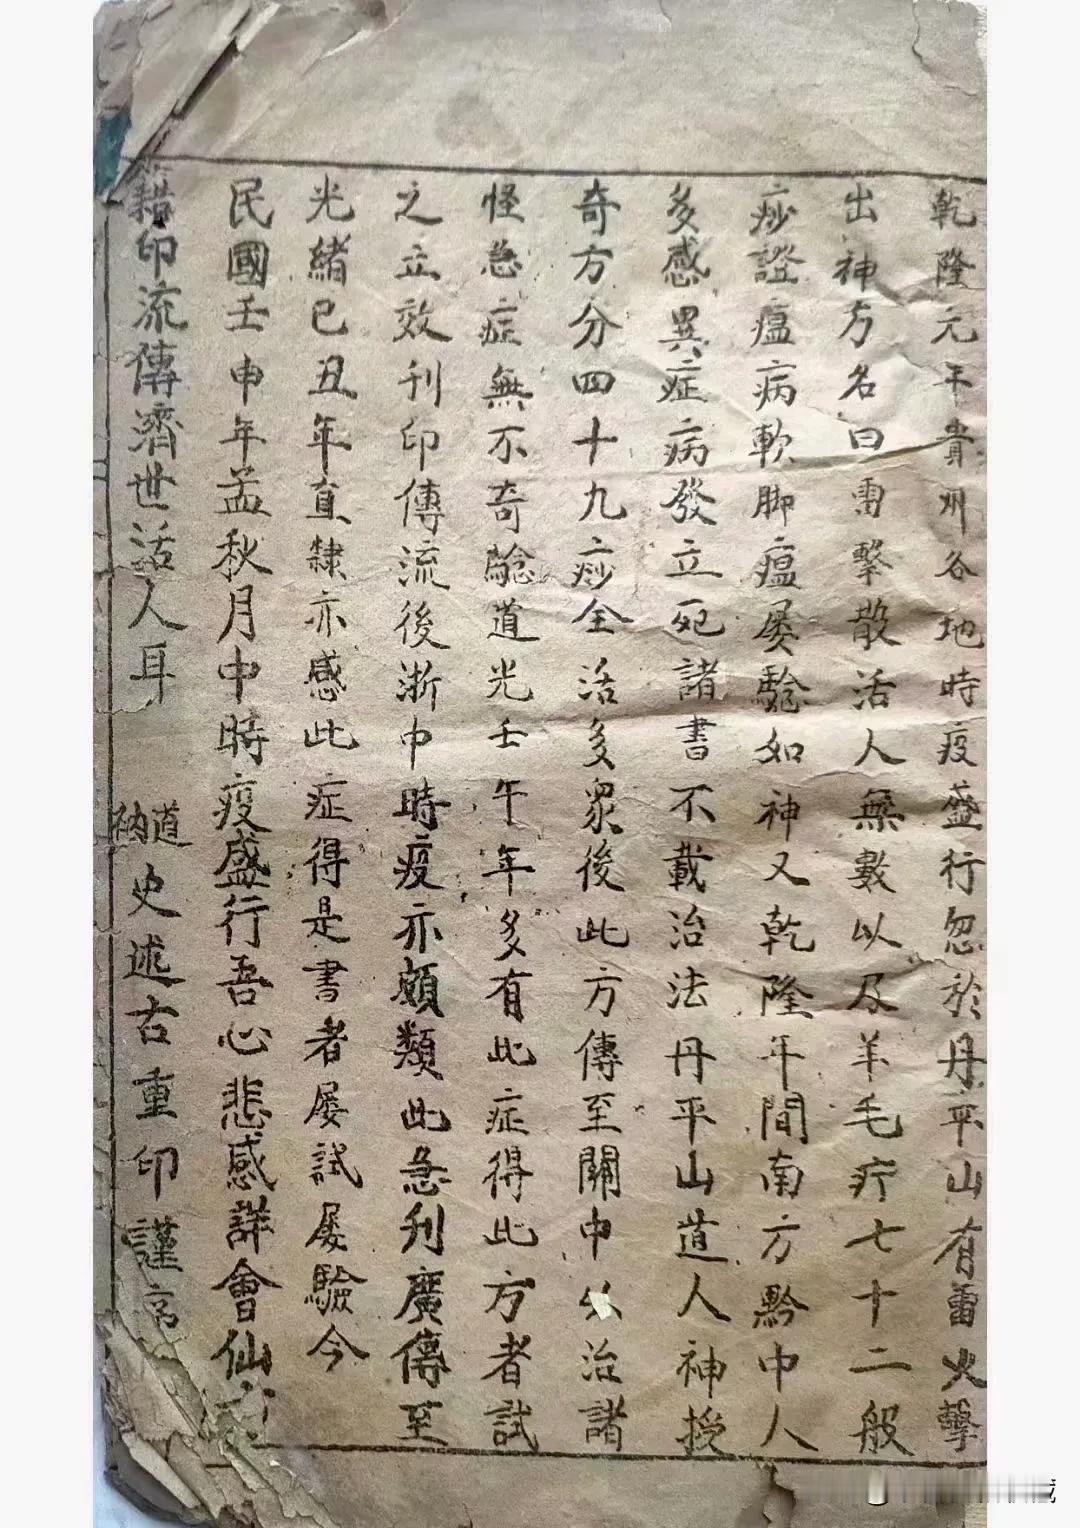 乾隆元年貴州各地時疫盛行忽於丹平山有雷火擊
出神方名曰雷擊散活人無數以及羊毛疔七十二般
痧證瘟病軟脚瘟屡驗如神又乾隆年間南方黔中人
多感異症病發立死諸書不載治法丹平山道人神授
奇方分四十九痧全活多衆後此方傳至關中以治諸
怪急症無不奇驗道光壬午年多有此症得此方者試
之立效刊印傳流後浙中時疫亦頗類此急刊廣傳至
光緒己丑年直隸亦感此症得是書者屡試屡驗今
民國壬申年孟秋月中時疫盛行吾心悲感詳會仙
籍印流傳濟世活人耳
道衲史述古重印謹序